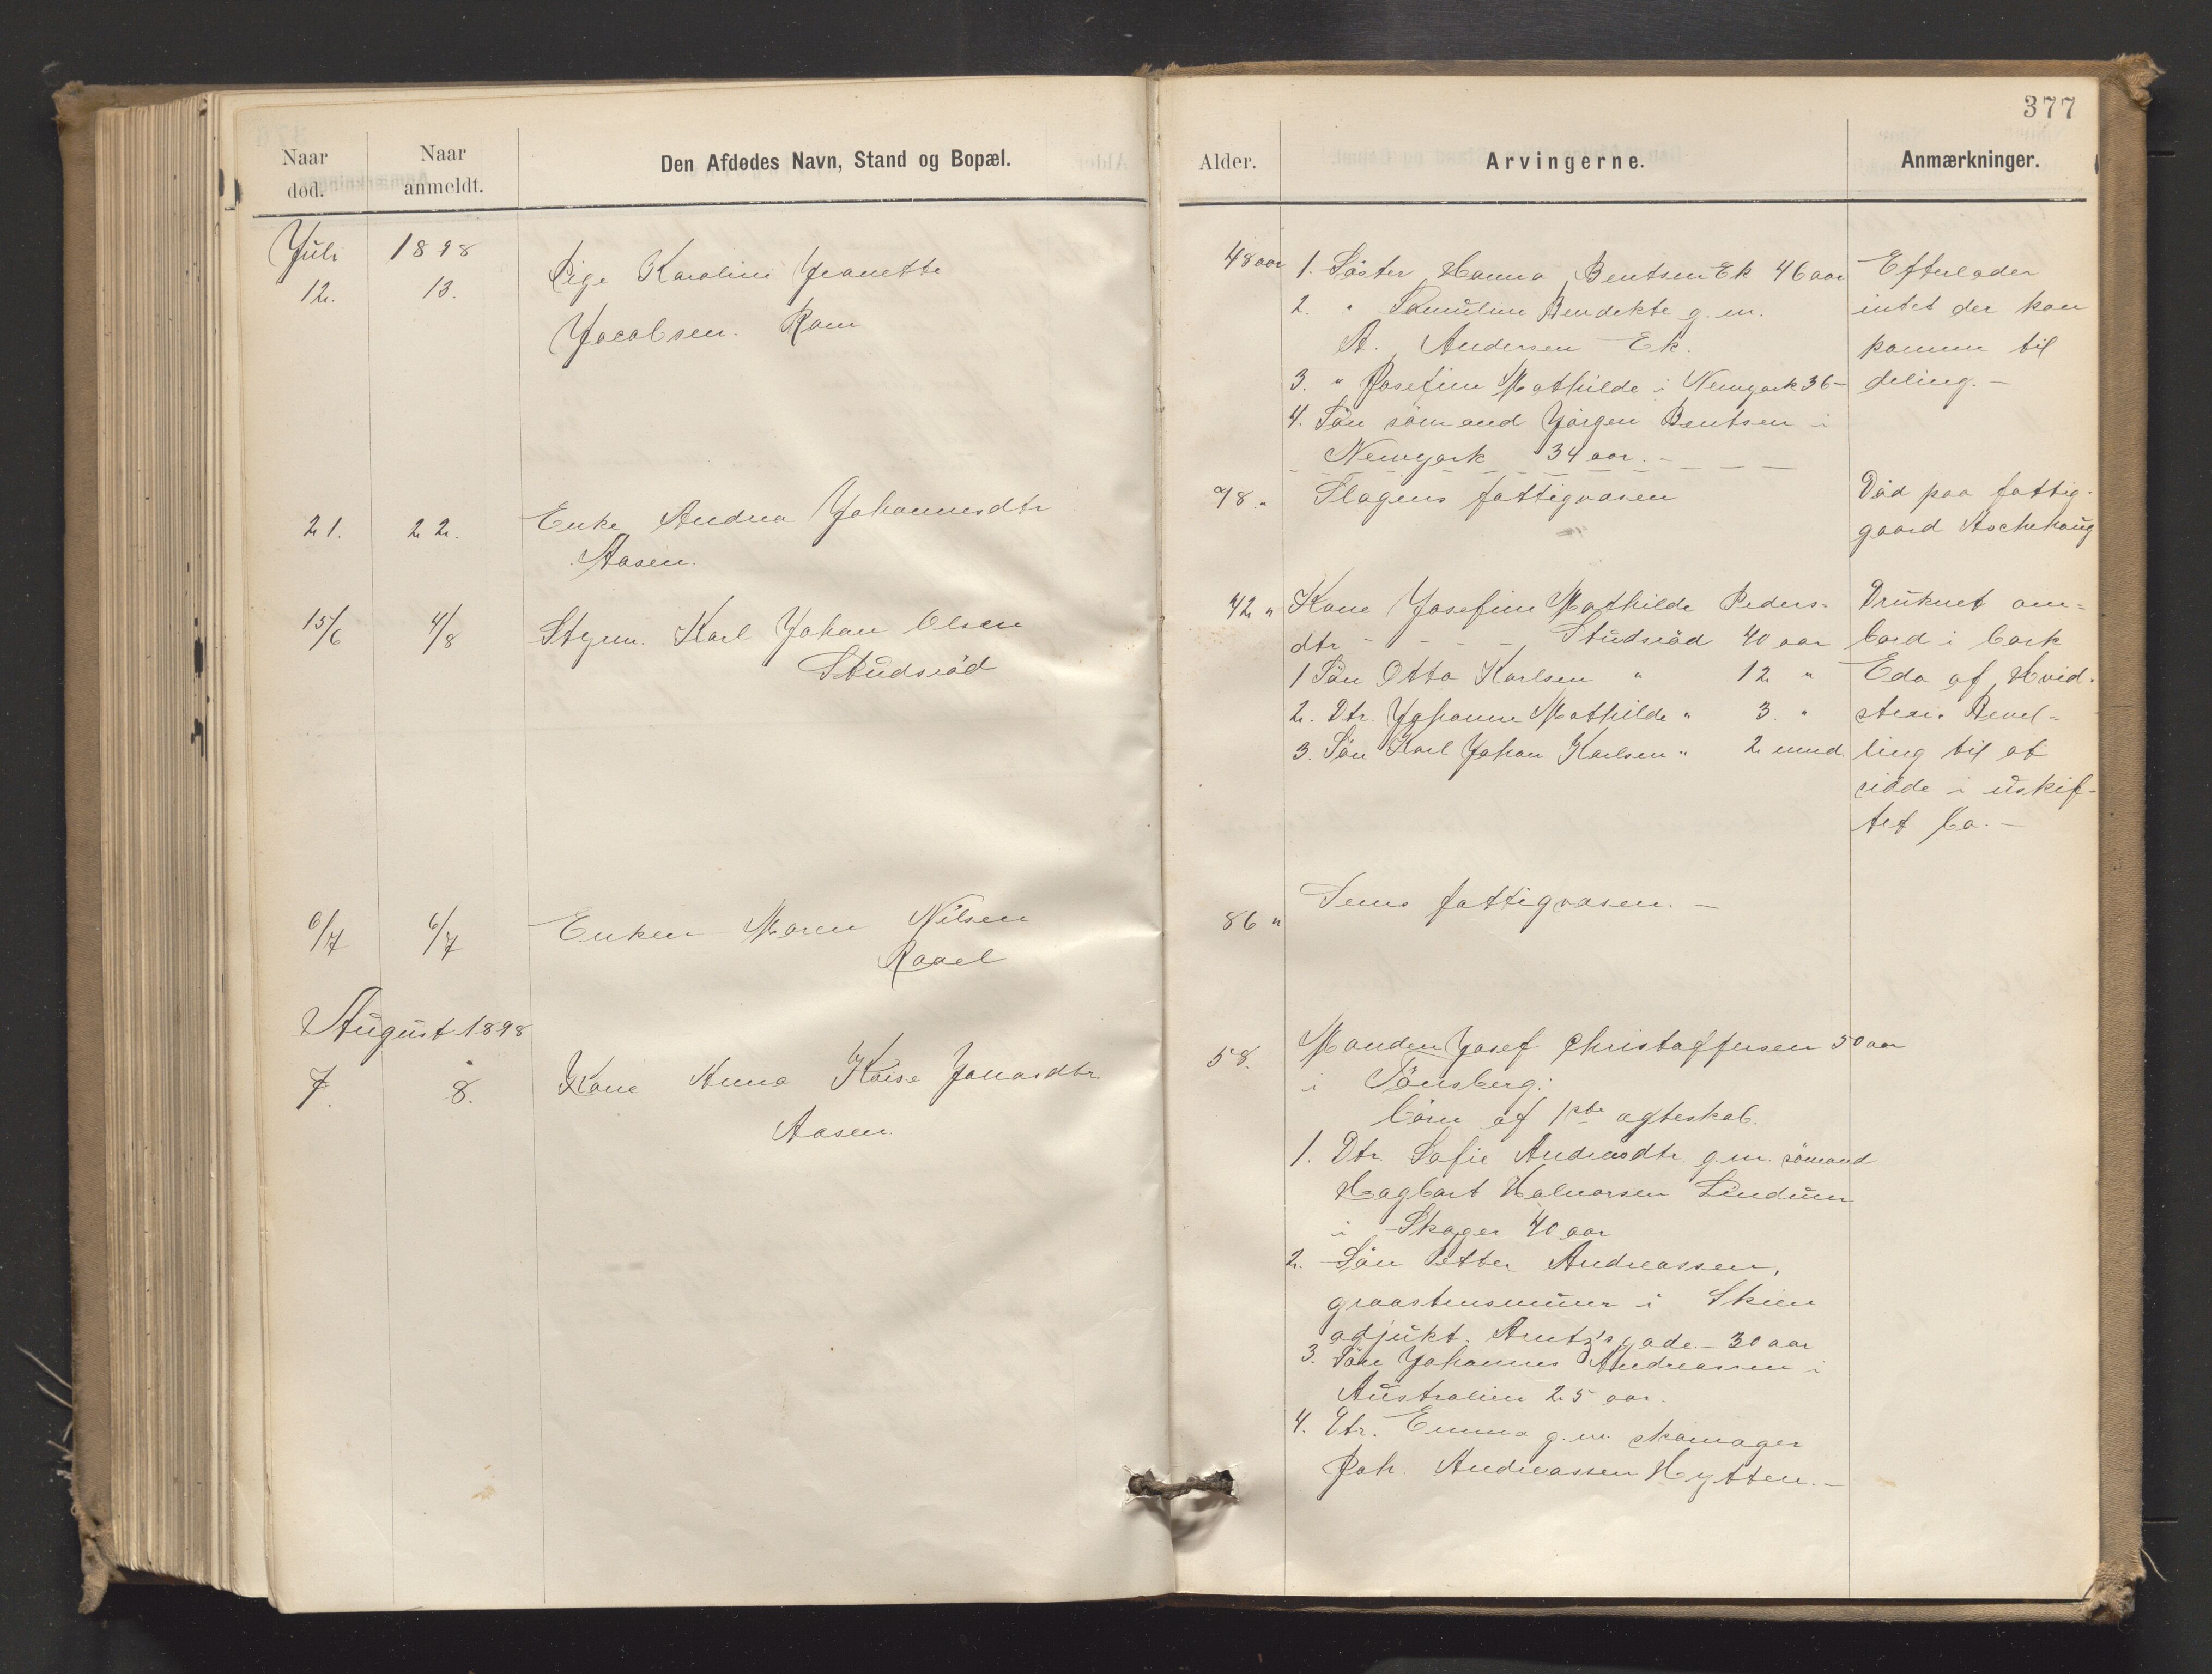 377
Naar død.
Naar anmeldt.
Den Afdødes Navn, Stand og Bopæl.
Alder.
Arvingerne.
Anmærkninger.
Juli 1898
12. 13. Pige Karoline Jeanette
Jacobsen. Ram
48 aar
1. Søster Hanna Bentsen Ek 46 aar
2. " Samuline Bendikte g. m.
A. Andersen Ek.
3. " Josefine Mathilde i Newyork 36 -
4. Søn sømand Jørgen Bentsen i
Newyork 34 aar. -
Efterlader
intet der kan
komme til
deling. -
21. 22. Enke Andrea Johannesdtr
Aasen.
78 "
Slagens fattigvæsen
Død paa fattig-
gaard Aschehoug
15/6 4/8 Styrm. Karl Johan Olsen
Studsrød
42 "
Kone Josefine Mathilde Peders-
dtr - - - - Studsrød 40 aar
1 Søn Otto Karlsen " 12 "
2. Dtr. Johanne Mathilde " 3. "
3. Søn Karl Johan Karlsen " 2 mnd.
Druknet om-
bord i bark
Eda af Hvid-
sten. Bevil-
ling til at
sidde i uskif-
tet bo. -
6/7 6/7 Enken Maren Nilsen
Raael
86 "
Sems fattigvæsen. -
August 1898
7. 8. Kone Anna Kaise Jonasdtr.
Aasen
58.
Manden Josef Christoffersen 50 aar
i Tønsberg.
børn af 1ste ægteskab.
1. Dtr. Sofie Andreasdtr g. m. sømand
Hagbart Halvorsen Lindum
i Skoger 40 aar
2. Søn Petter Andreassen,
graastensmurer i Skien
adjukt. Arntz's gade - 30 aar
3. Søn Johannes Andreassen i
Australien 25 aar.
4. Dtr. Emma g. m. skomager
Joh. Andreassen Hytten. -